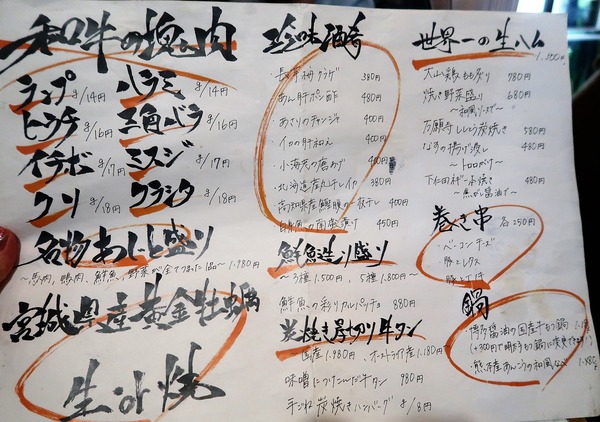 和牛の塊肉
ランプ g/14円 ハラミ g/14円
ヒウチ g/16円 三角バラ g/16円
イチボ g/17円 ミスジ g/17円
クリ g/18円 クラシタ g/18円
名物あいもり盛り
〜馬肉、鴨肉、鮮魚、野菜が全てのった一品〜 1.980円
宮城県産黄金牡蠣
生 or 焼
珍味酒肴
・長芋梅クラゲ 380円
・あん肝ポン酢 480円
・あさりのチャンジャ 400円
・イカの肝和え 400円
・小海老の唐あげ 400円
・北海道産丸干しイカ 380円
400円
450円
鮮魚造り盛り
〜3種 1.500円、5種 1.800円〜
鮮魚の彩りカルパッチョ 880円
炭焼き厚切り牛タン
国産 1.980円、オーストラリア産 1.180円
味噌につけこんだ牛タン 980円
手ごね炭焼きハンバーグ g/8円
世界一の生ハム 1.200円
・大山鶏もも炙り 780円
・焼き野菜盛り 680円
〜和風ソース〜
・万願寺ししとう炭焼き 580円
・なすの揚げ浸し 480円
〜トロロがけ〜
・下仁田ネギ一本焼き 480円
〜焦がし醤油で〜
巻き串 各250円
・ベーコンチーズ
・豚とレタス
鍋
・博多醤油の国産牛もつ鍋
・熊本産あんこうの和風